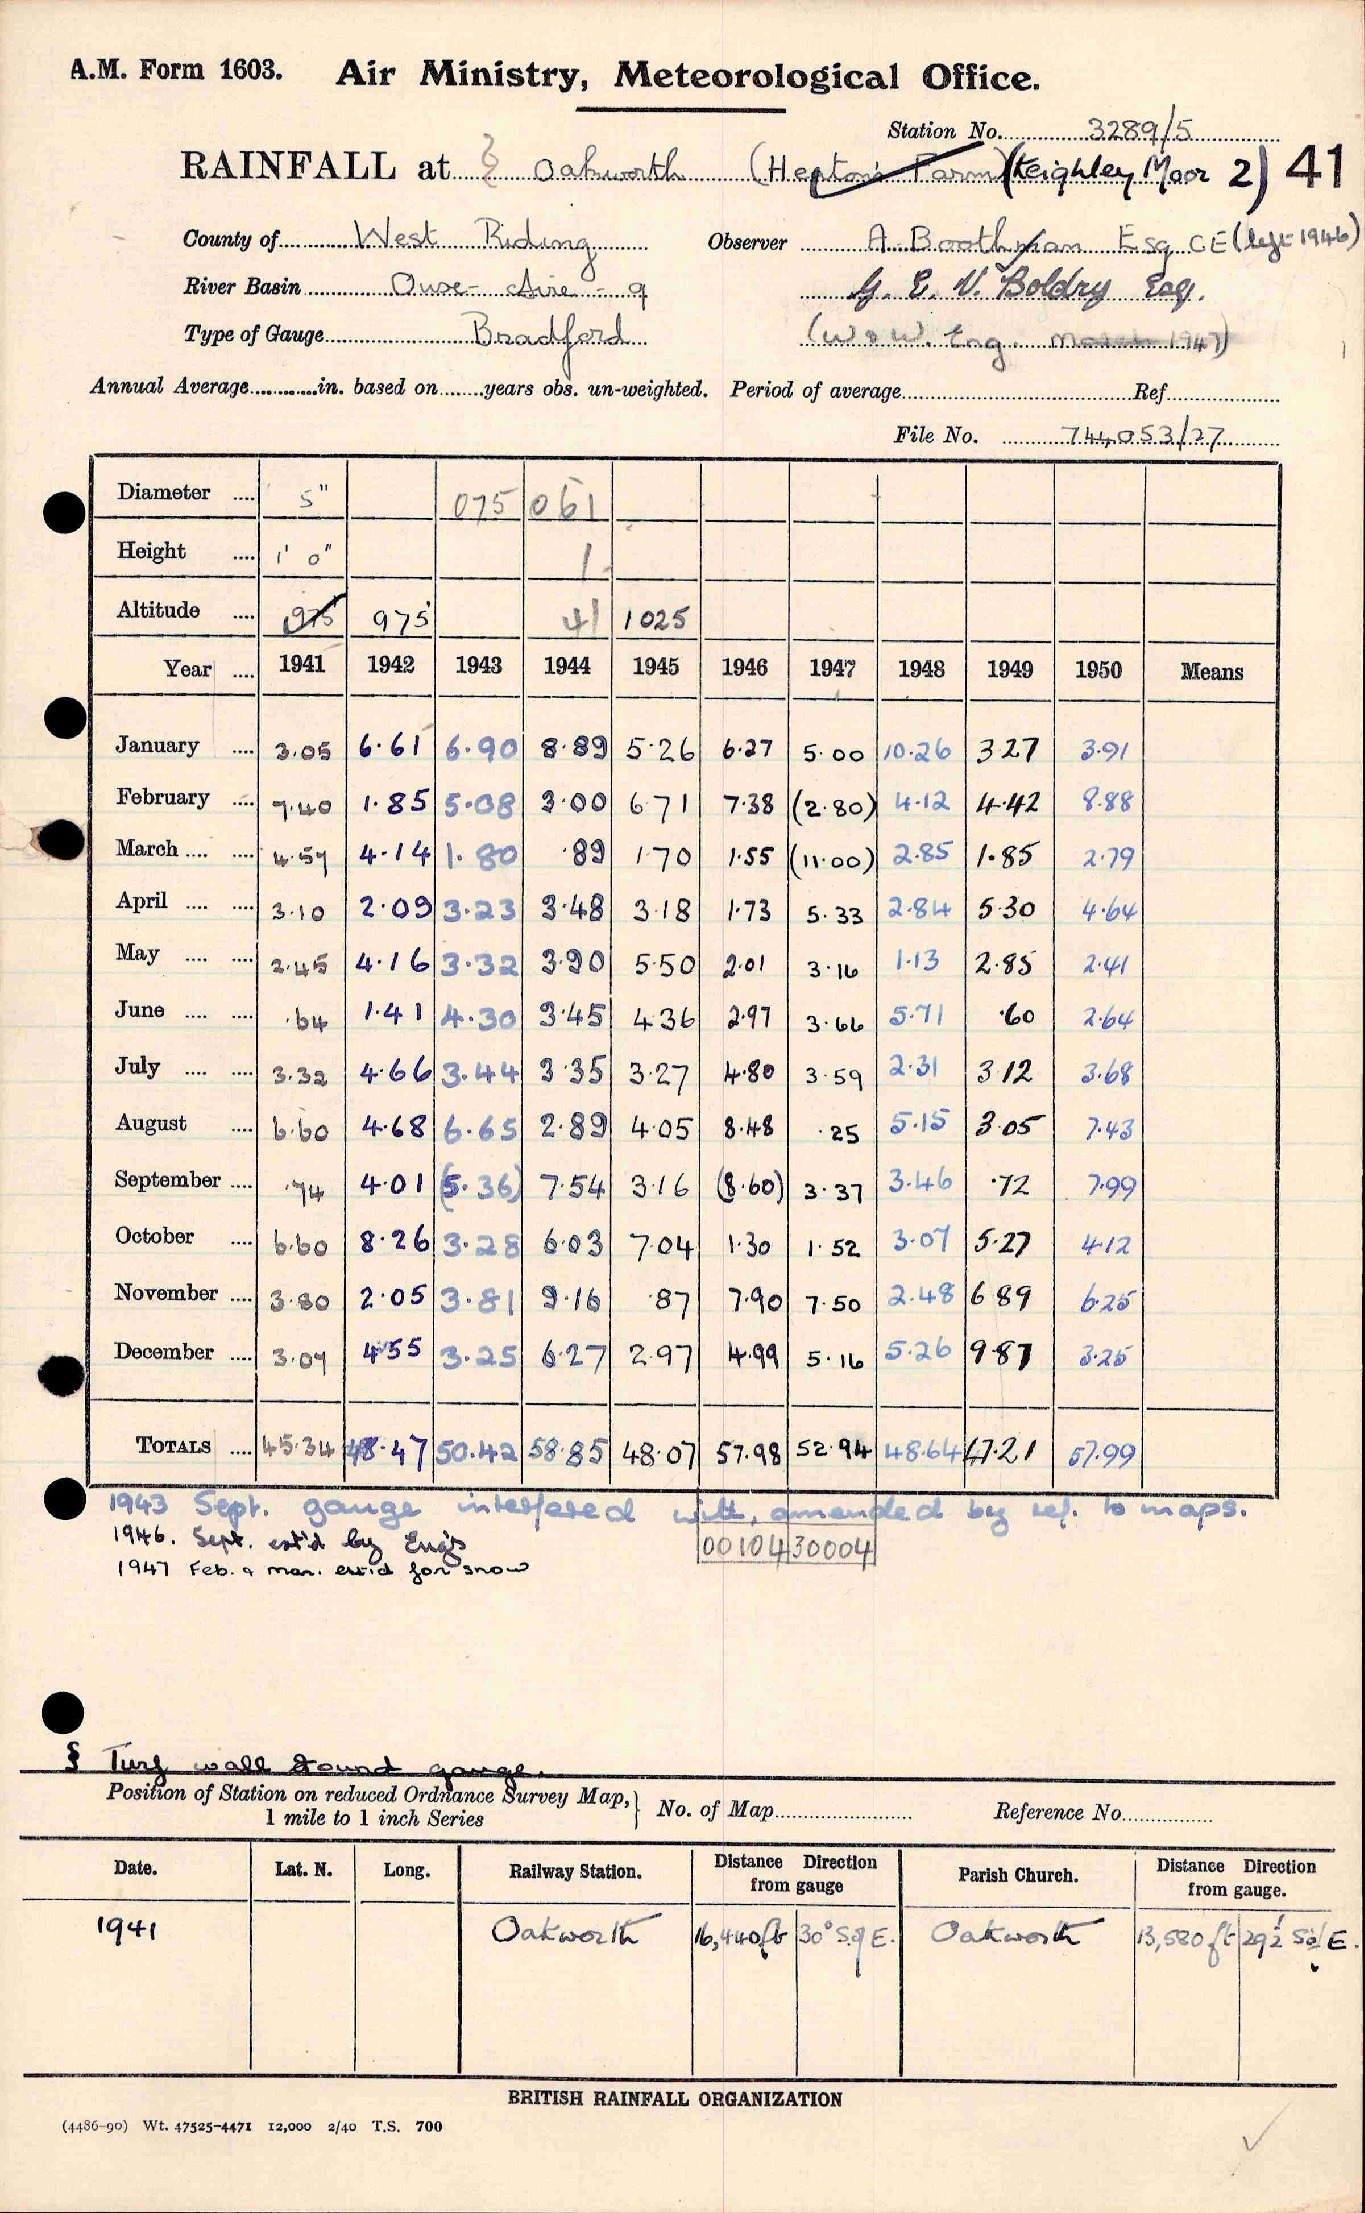 A.M. Form 1603. Air Ministry, Meteorological Office.
Station No. 3289/5
RAINFALL at § Oakworth (Hepton's Farm) (Keighley Moor 2) 41
County of West Riding Observer A Boothman Esq CE (left 1946)
River Basin Ouse - Aire - 9 G. E. V. Boldry Esq.
Type of Gauge Bradford (W & W. Eng. March 1947)
Annual Average............in. based on.......years obs. un-weighted. Period of average............ Ref............
File No. 744053/27
Diameter .... 5" 075 061
Height .... 1' 0" 1
Altitude .... 975 975 41 1025
Year .... 1941 1942 1943 1944 1945 1946 1947 1948 1949 1950 Means
January .... 3.05 6.61 6.90 8.89 5.26 6.27 5.00 10.26 3.27 3.91
February .... 7.40 1.85 5.08 3.00 6.71 7.38 (2.80) 4.12 4.42 8.88
March .... .... 4.57 4.14 1.80 .89 1.70 1.55 (11.00) 2.85 1.85 2.79
April .... .... 3.10 2.09 3.23 3.48 3.18 1.73 5.33 2.84 5.30 4.64
May .... .... 2.45 4.16 3.32 3.90 5.50 2.01 3.16 1.13 2.85 2.41
June .... .... .64 1.41 4.30 3.45 4.36 2.97 3.66 5.71 .60 2.64
July .... .... 3.32 4.66 3.44 3.35 3.27 4.80 3.59 2.31 3.12 3.68
August .... 6.60 4.68 6.65 2.89 4.05 8.48 .25 5.15 3.05 7.43
September .... .74 4.01 (5.36) 7.54 3.16 (8.60) 3.37 3.46 .72 7.99
October .... 6.60 8.26 3.28 6.03 7.04 1.30 1.52 3.07 5.27 4.12
November .... 3.80 2.05 3.81 9.16 .87 7.90 7.50 2.48 6.89 6.25
December .... 3.07 4.55 3.25 6.27 2.97 4.99 5.16 5.26 9.87 3.25
TOTALS .... 45.34 48.47 50.42 58.85 48.07 57.98 52.94 48.64 47.21 57.99
1943 Sept. gauge interfered with, amended by ref. to maps.
1946. Sept. est'd by Eng's 00104 30004
1947 Feb. & Mar. est'd for snow
§ Turf wall round gauge.
Position of Station on reduced Ordnance Survey Map, } No. of Map............ Reference No............
1 mile to 1 inch Series
Date. Lat. N. Long. Railway Station. Distance Direction from gauge Parish Church. Distance Direction from gauge.
1941 Oakworth 16,440 ft 30° S. of E. Oakworth 13,580 ft 29½ S of E.
BRITISH RAINFALL ORGANIZATION
(4486-90) Wt. 47525-4471 12,000 2/40 T.S. 700